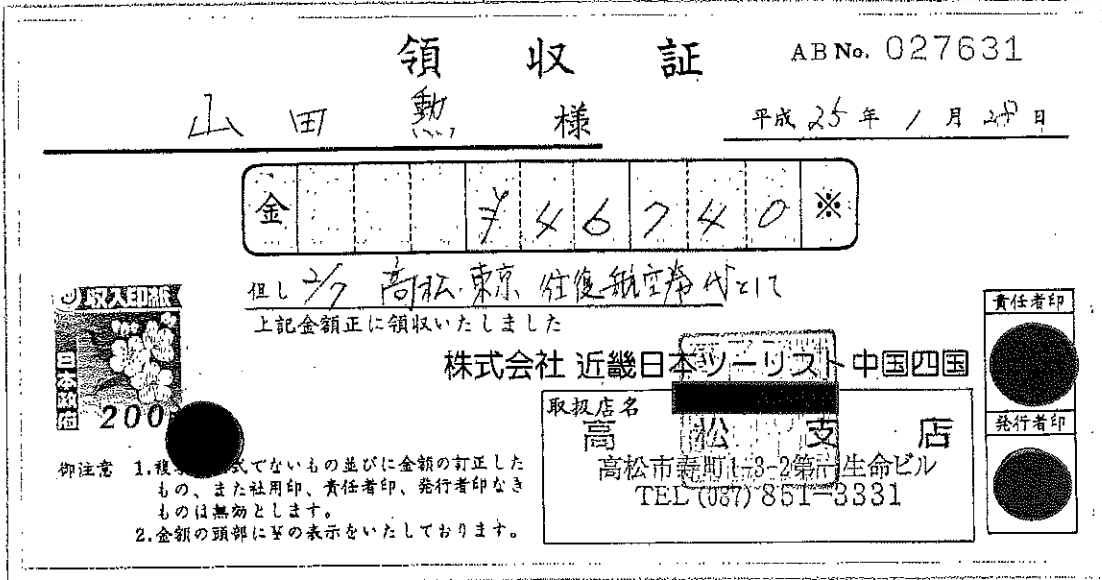 領収証 ABNo. 027631
山田 勲 様 平成25年1月28日
金 ¥46740※
但し 2/7 高松・東京 往復航空券代として
上記金額正に領収いたしました
収入印紙
日本政府
200
株式会社 近畿日本ツーリスト中国四国
取扱店名
高松支店
高松市寿町1-3-2第一生命ビル
TEL (087) 851-3331
責任者印
発行者印
御注意 1.複 式でないもの並びに金額の訂正した
もの、また社用印、責任者印、発行者印なき
ものは無効とします。
2.金額の頭部に¥の表示をいたしております。